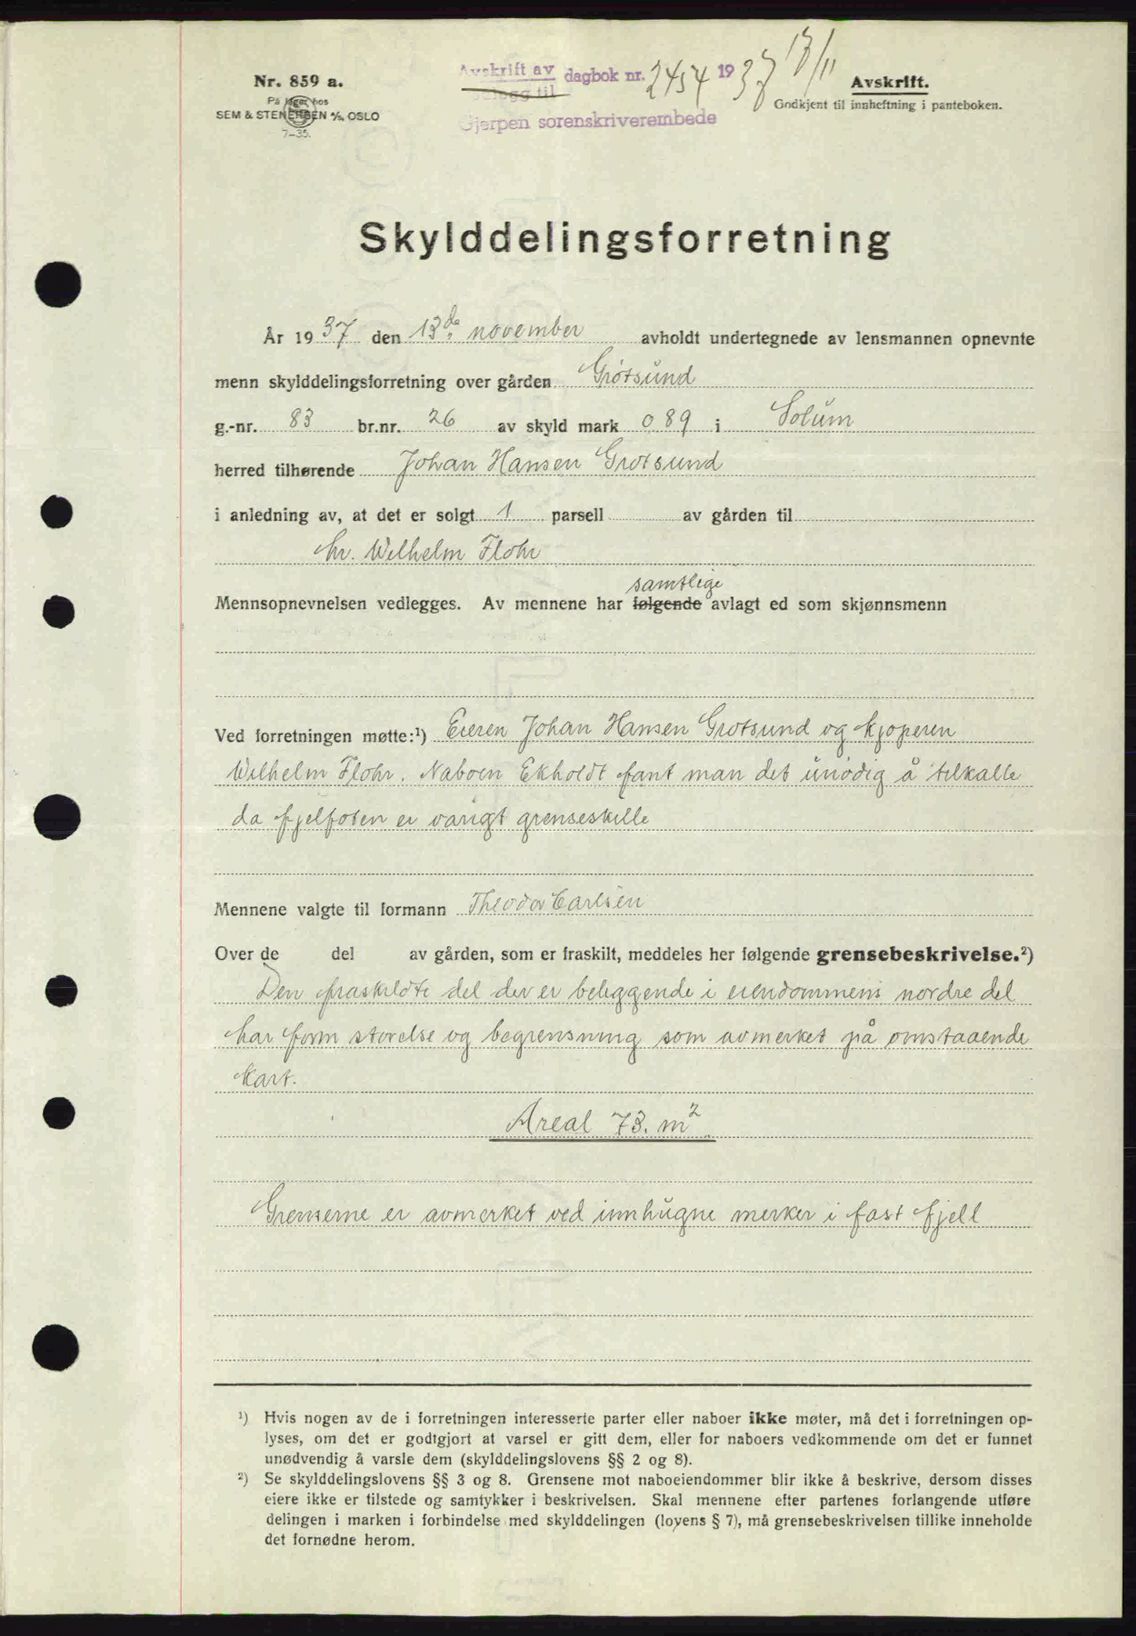 Nr. 859 a.
På lager hos
SEM & STENERSEN A/S, OSLO
7-35.
Avskrift av dagbok nr. 2454 1937 17/11
bilagg til
Gjerpen sorenskriverembede
Avskrift.
Godkjent til innheftning i panteboken.
Skylddelingsforretning
År 1937 den 13de november avholdt undertegnede av lensmannen opnevnte
menn skylddelingsforretning over gården Grotsund
g.-nr. 83 br.nr. 26 av skyld mark 0 89 i Solum
herred tilhørende Johan Hansen Grotsund
i anledning av, at det er solgt 1 parsell av gården til
hr. Wilhelm Flohr
samtlige
Mennsopnevnelsen vedlegges. Av mennene har følgende avlagt ed som skjønnsmenn
Ved forretningen møtte:¹) Eieren Johan Hansen Grotsund og kjøperen
Wilhelm Flohr. Naboen Ekholdt fant man det unødig å tilkalle
da fjelfoten er varigt grenseskille
Mennene valgte til formann Theodor Carlsen
Over de del av gården, som er fraskilt, meddeles her følgende grensebeskrivelse.²)
Den fraskildte del der er beliggende i eiendommens nordre del
har form størelse og begrensning som avmerket på omstaaende
kart.
Areal 73. m²
Grenserne er avmerket ved innhugne merker i fast fjell
¹) Hvis nogen av de i forretningen interesserte parter eller naboer ikke møter, må det i forretningen op-
lyses, om det er godtgjort at varsel er gitt dem, eller for naboers vedkommende om det er funnet
unødvendig å varsle dem (skylddelingslovens §§ 2 og 8).
²) Se skylddelingslovens §§ 3 og 8. Grensene mot naboeiendommer blir ikke å beskrive, dersom disses
eiere ikke er tilstede og samtykker i beskrivelsen. Skal mennene efter partenes forlangende utføre
delingen i marken i forbindelse med skylddelingen (lovens § 7), må grensebeskrivelsen tillike inneholde
det fornødne herom.